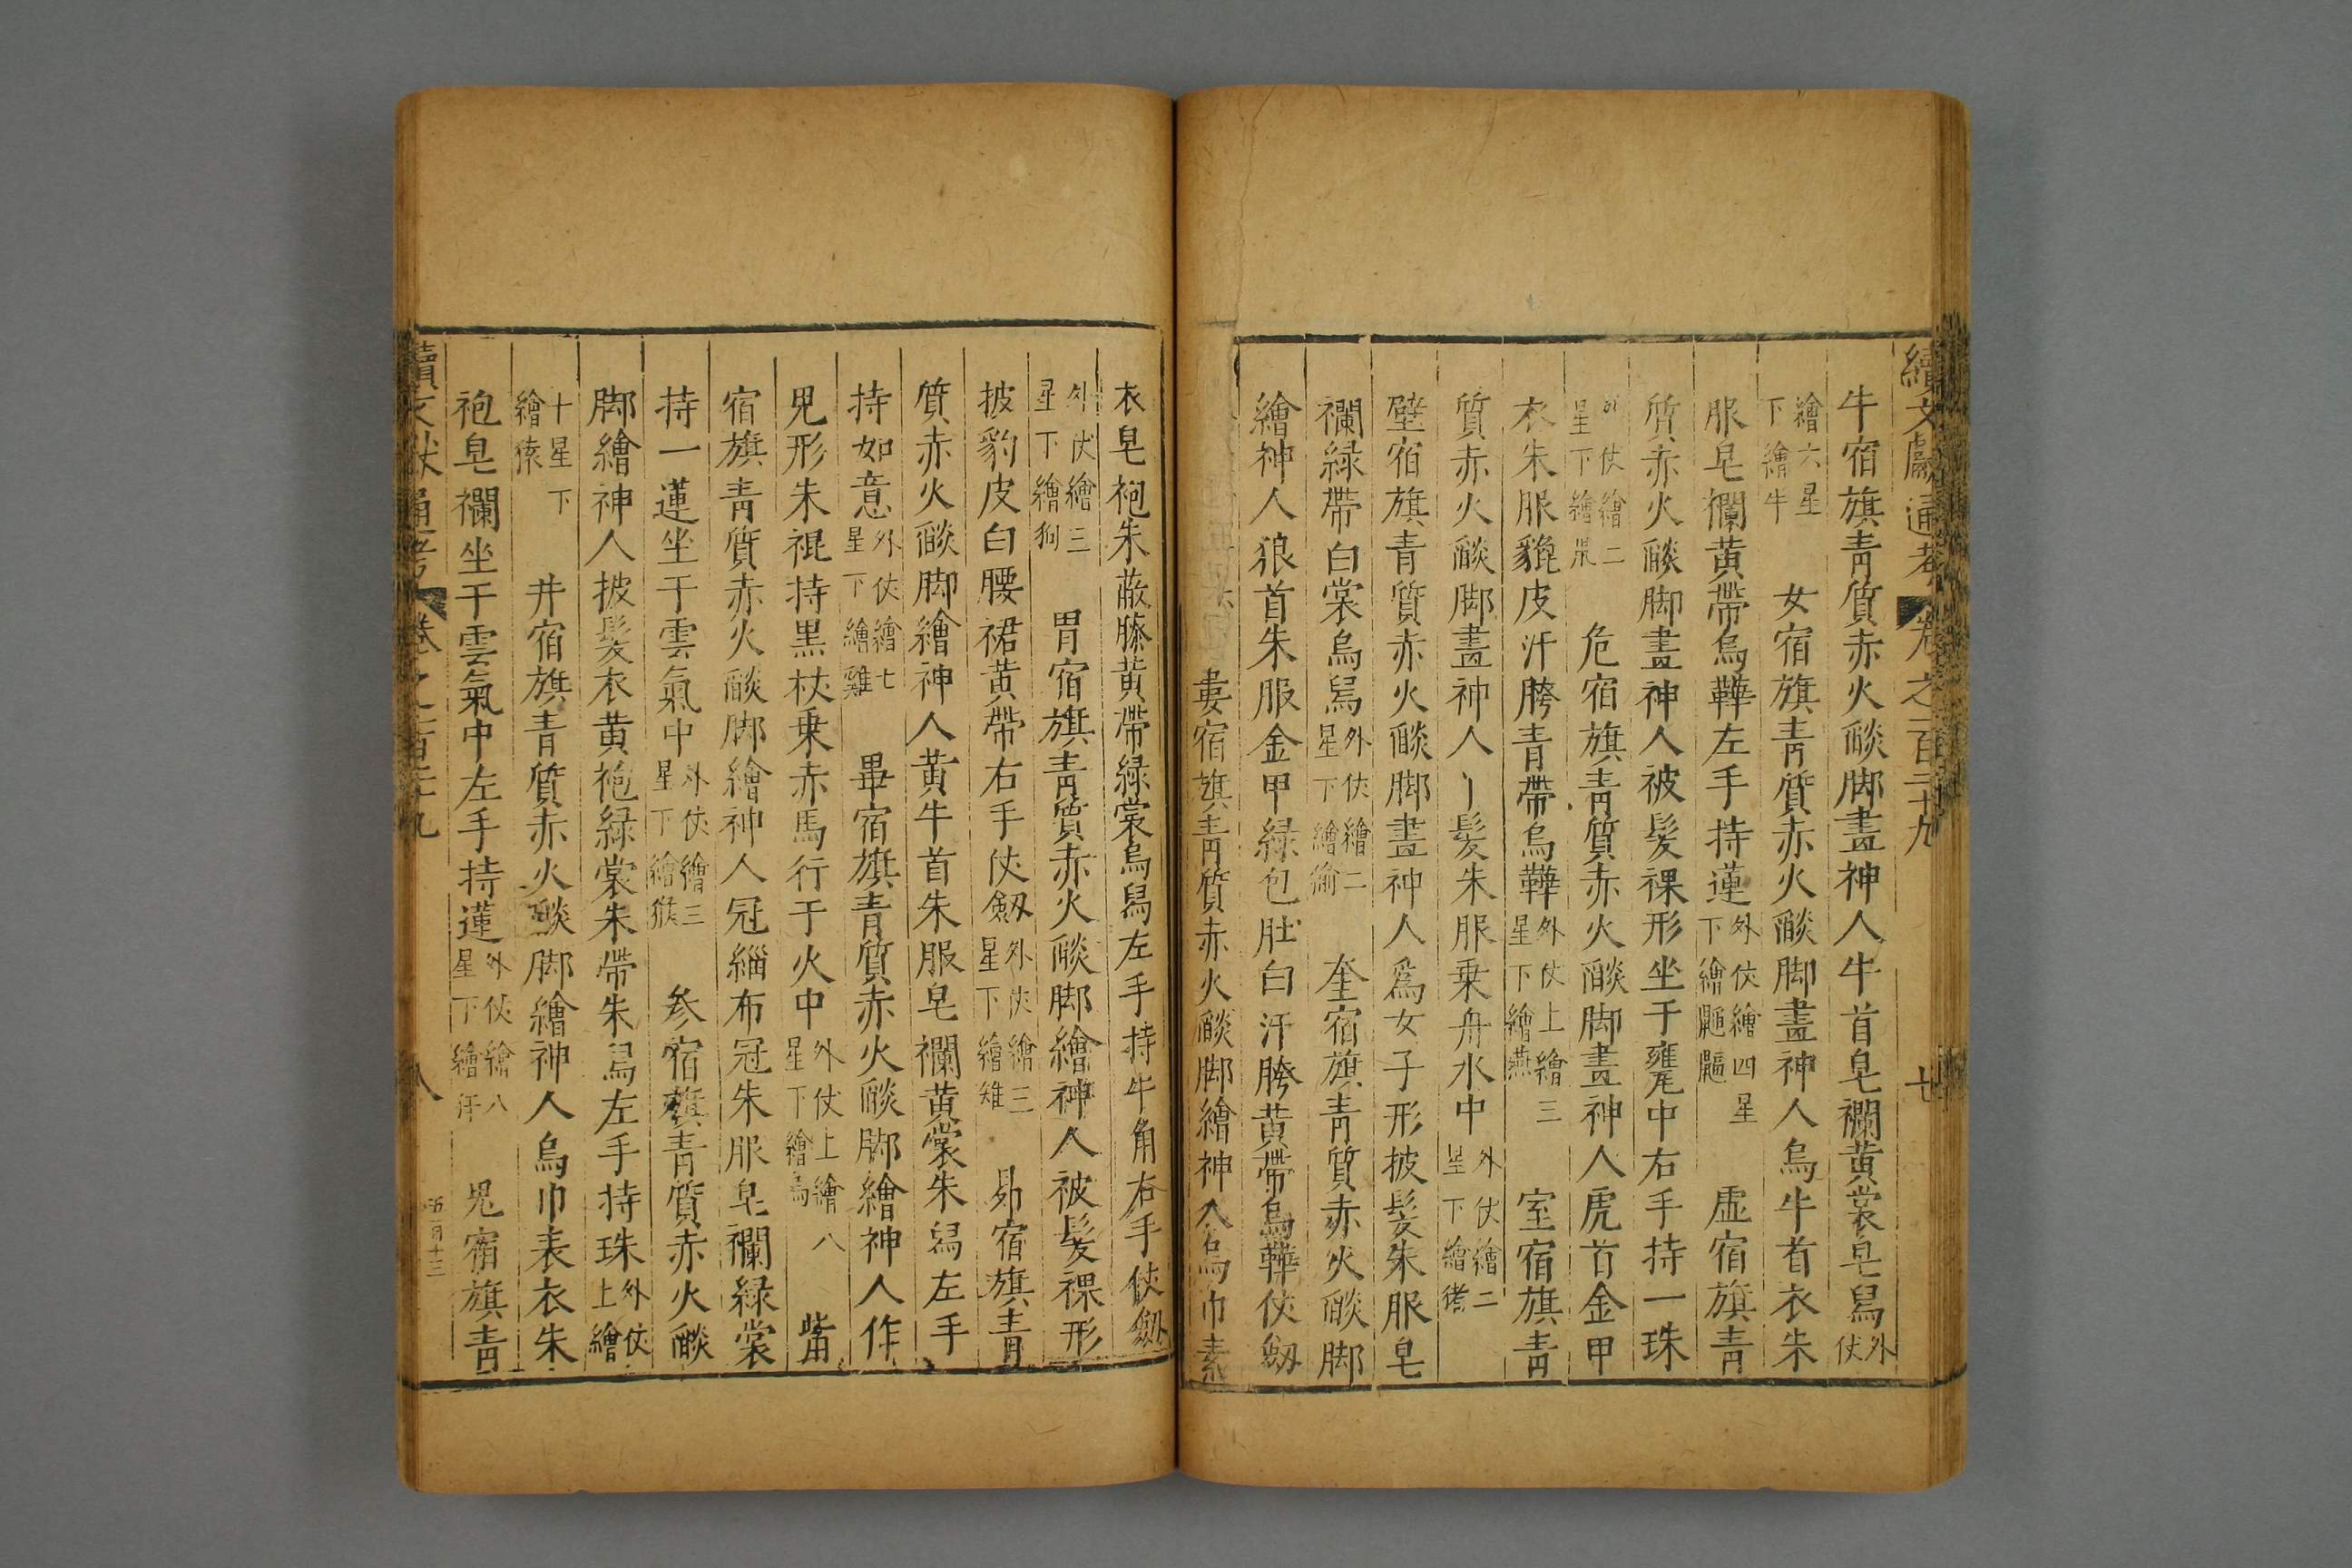 續文獻通考 卷之一百二十九 七
牛宿旗青質赤火燄脚畫神人牛首皂襴黃裳皂舄外仗
繪六星下繪牛 女宿旗青質赤火燄脚畫神人烏牛首衣朱
服皂襴黃帶烏鞾左手持蓮外仗繪四星下繪 虛宿旗青
質赤火燄脚畫神人被髪裸形坐于甕中右手持一珠
外仗繪二星下繪鼠 危宿旗青質赤火燄脚畫神人虎首金甲
衣朱服貔皮汗胯青帶烏鞾外仗上繪三星下繪燕 室宿旗青
質赤火燄脚畫神人丫髪朱服乗舟水中外仗繪二星下繪
壁宿旗青質赤火燄脚畫神人爲女子形披髪朱服皂
襴綠帶白裳烏舄外仗繪二星下繪 奎宿旗青質赤火燄脚
繪神人狼首朱服金甲綠包肚白汗胯黃帶烏鞾仗劔
婁宿旗青質赤火燄脚繪神人烏巾素
衣皂袍朱蔽膝黃帶綠裳烏舄左手持牛角右手仗劔
外仗繪三星下繪狗 胃宿旗青質赤火燄脚繪神人被髪裸形
披豹皮白腰裙黃帶右手仗劔外仗繪三星下繪雉 昴宿旗青
質赤火燄脚繪神人黃牛首朱服皂襴黃裳朱舄左手
持如意外仗繪七星下繪雞 畢宿旗青質赤火燄脚繪神人作
鬼形朱裩持黑杖乗赤馬行于火中外仗上繪八星下繪烏 觜
宿旗青質赤火燄脚繪神人冠緇布冠朱服皂襴綠裳
持一蓮坐于雲氣中外仗繪三星下繪猴 參宿旗青質赤火燄
脚繪神人披髪衣黃袍綠裳朱帶朱舄左手持珠外仗上繪
十星下繪猿 井宿旗青質赤火燄脚繪神人烏巾素衣朱
袍皂襴坐于雲氣中左手持蓮外仗繪八星下繪汗 鬼宿旗青
續文獻通考 卷之一百二十九 八